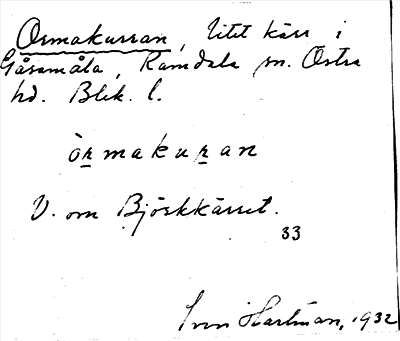 Ormakurran, litet kärr i
Gåsamåla, Ramdala sn. Östra
hd. Blek. l.
òrmakuran
V. om Björkkärret.
33
Hartman, 1932